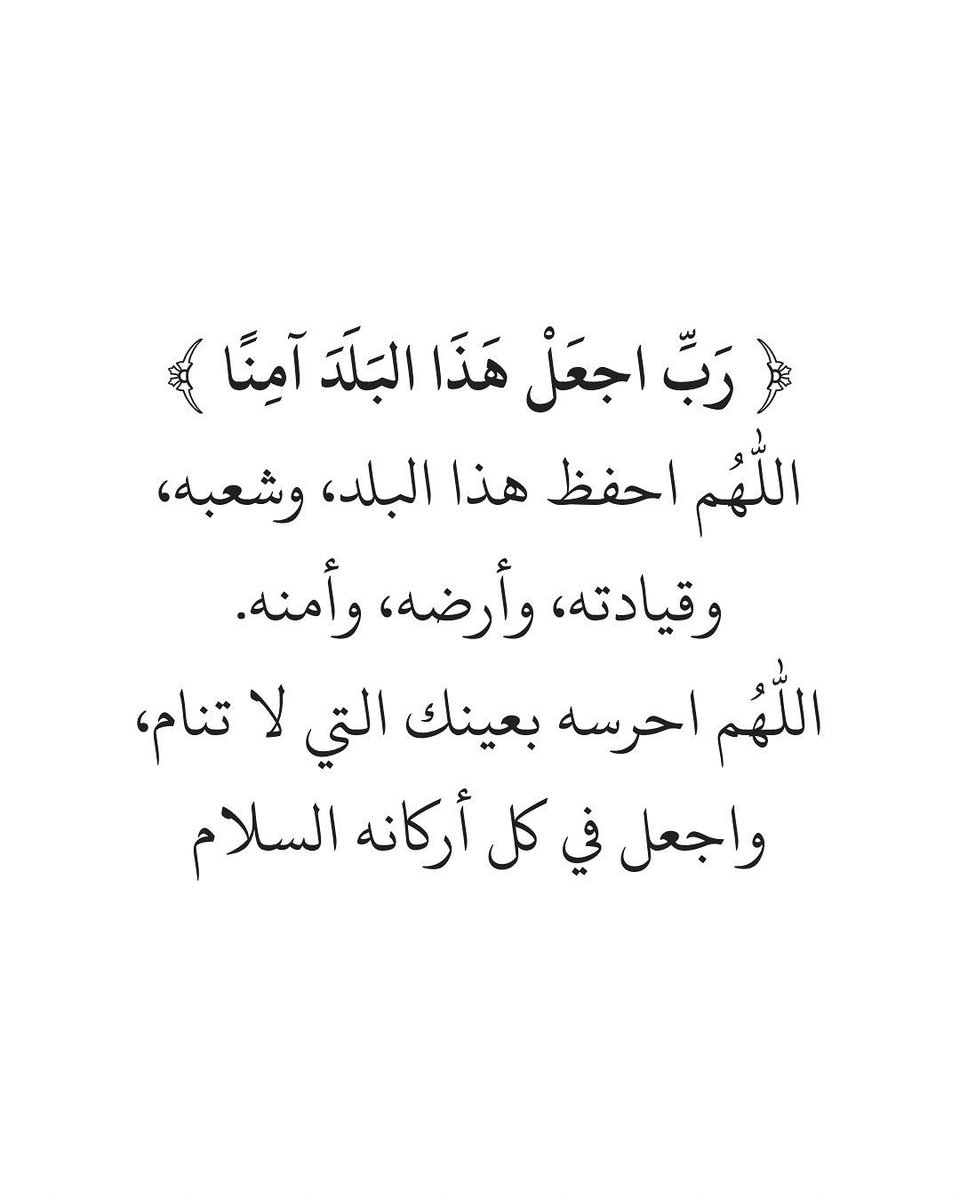 ﴿ رَبِّ اجعَلْ هَذَا البَلَدَ آمِنًا ﴾
اللّٰهُم احفظ هذا البلد، وشعبه،
وقيادته، وأرضه، وأمنه.
اللّٰهُم احرسه بعينك التي لا تنام،
واجعل في كل أركانه السلام